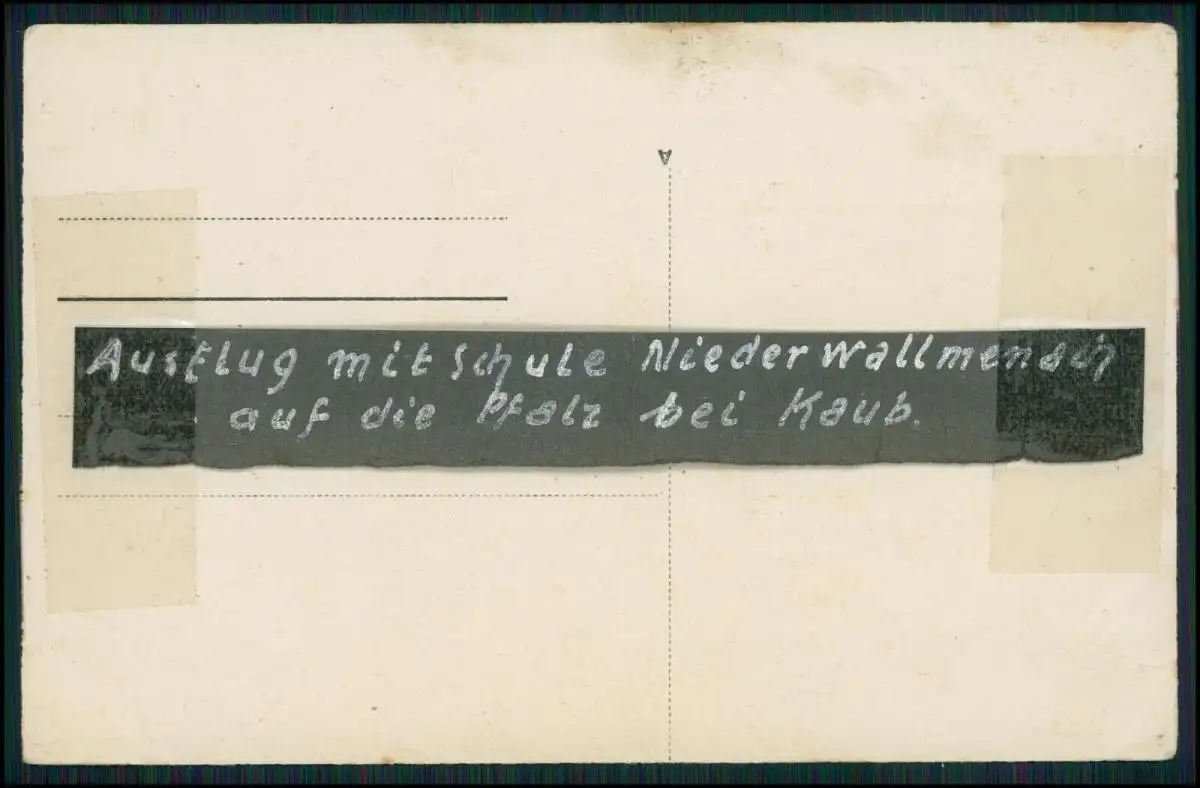 Ausflug mit Schule Niederwallmenach
auf die Pfalz bei Kaub.